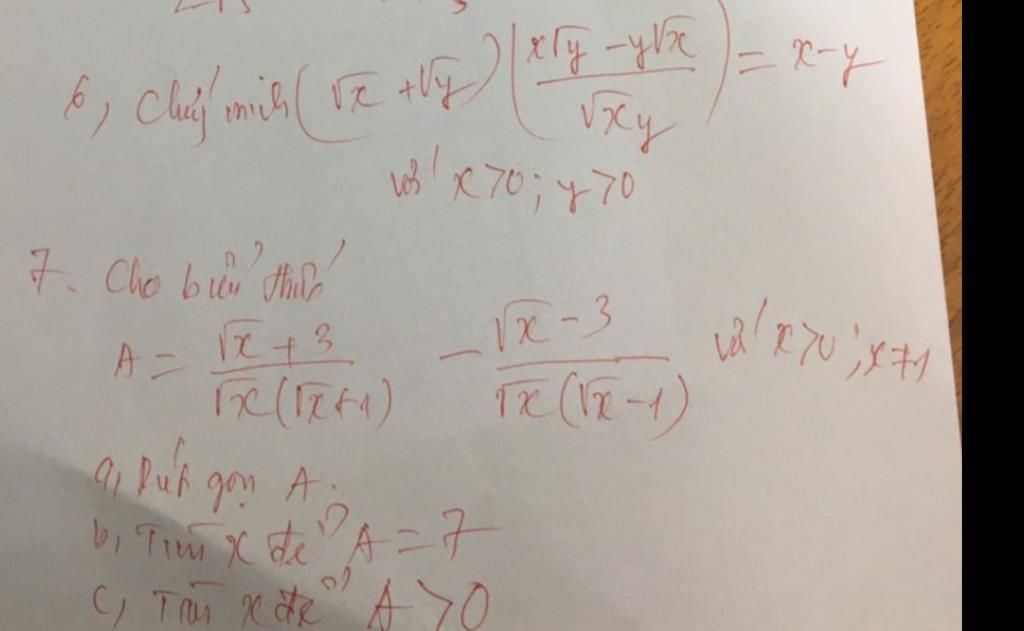 6, Chứng minh (√x + √y) (x√y - y√x / √xy) = x - y
với x > 0 ; y > 0
7. Cho biểu thức
A = √x + 3 / √x(√x + 1) - √x - 3 / √x(√x - 1) với x > 0 ; x ≠ 1
a, Rút gọn A.
b, Tìm x để A = 7
c, Tìm x để A > 0